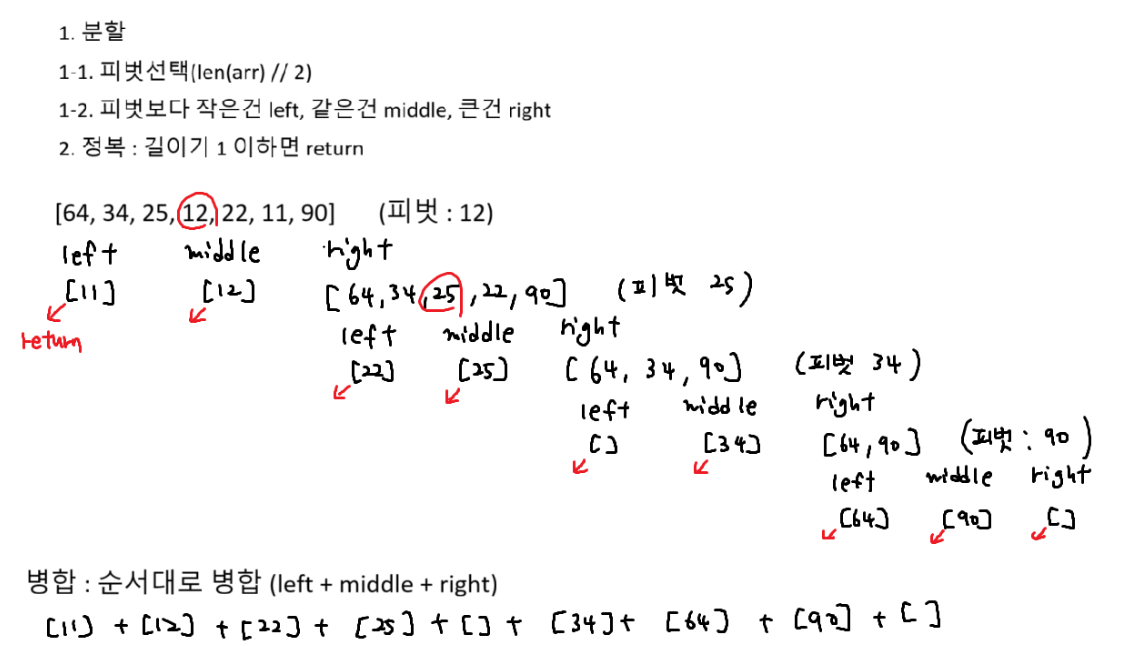 1. 분할
1-1. 피벗선택(len(arr) // 2)
1-2. 피벗보다 작은건 left, 같은건 middle, 큰건 right
2. 정복 : 길이기 1 이하면 return
[64, 34, 25, 12, 22, 11, 90] (피벗 : 12)
left middle right
[11] [12] [64, 34, 25, 22, 90] (피벗 25)
return
left middle right
[22] [25] [64, 34, 90] (피벗 34)
left middle right
[] [34] [64, 90] (피벗 : 90)
left middle right
[64] [90] []
병합 : 순서대로 병합 (left + middle + right)
[11] + [12] + [22] + [25] + [] + [34] + [64] + [90] + []